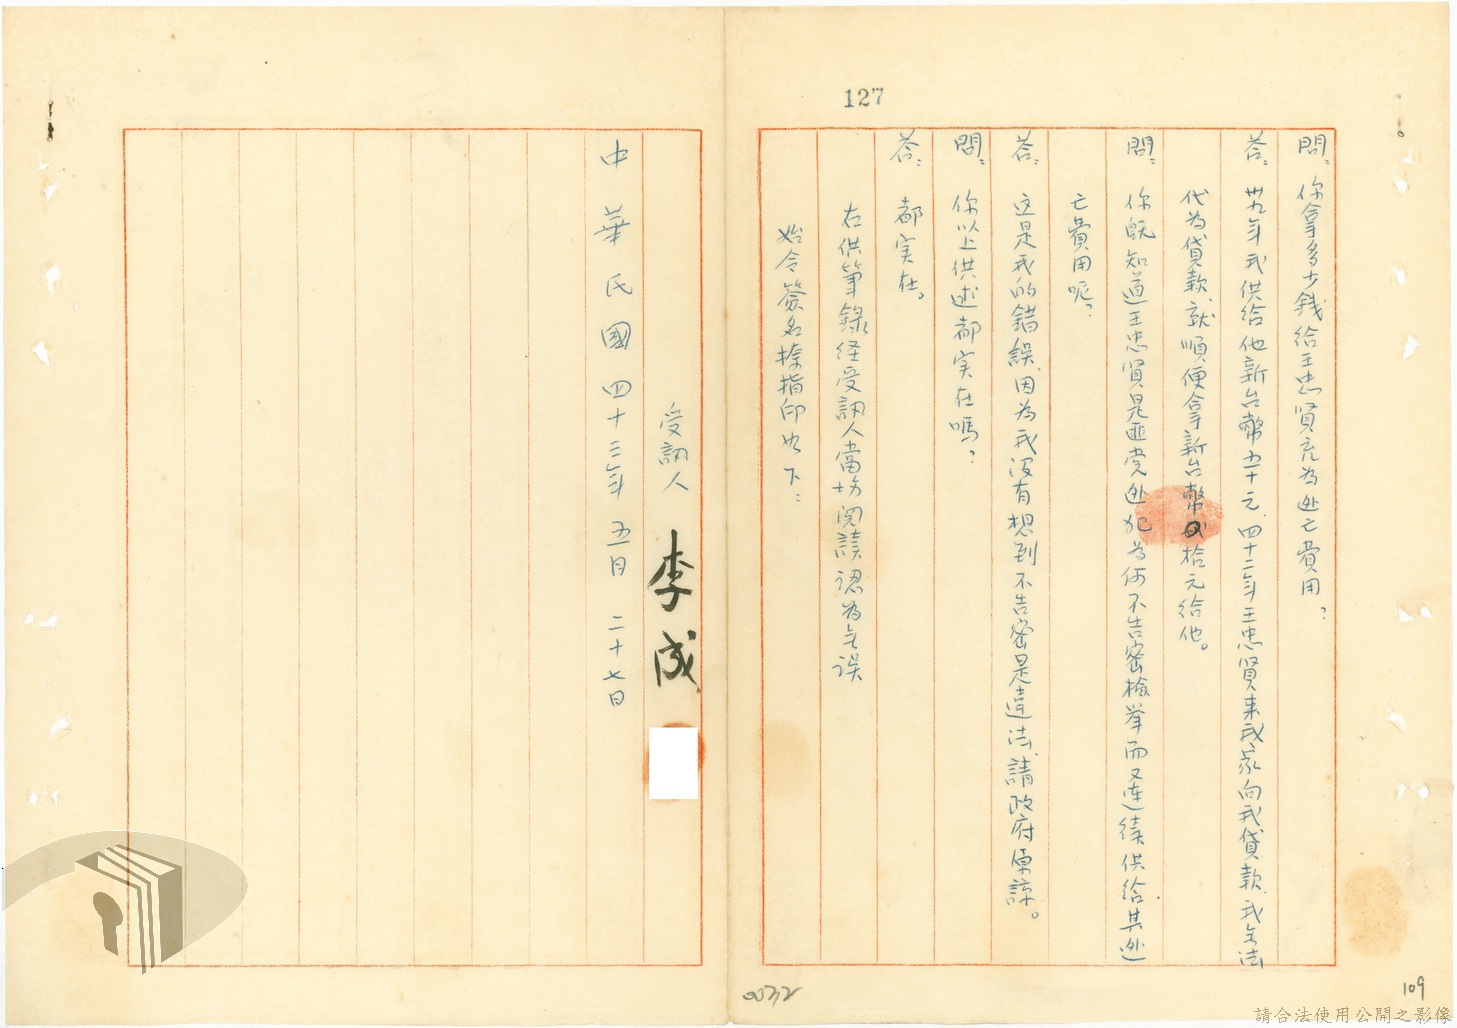 127
問：你拿多少錢給王忠賢充為逃亡費用？
答：卅九年我供給他新台幣五十元、四十二年王忠賢来我家向我貸款、我无法
代為貸款、就順便拿新台幣 拾元給他。
問：你既知道王忠賢是匪党逃犯為何不告密檢举而又连續供給其逃
亡費用呢？
答：这是我的錯誤、因為我没有想到不告密是違法、請政府原諒。
問：你以上供述都实在嗎？
答：都实在。
右供筆錄経受訊人當场閱讀認為无误
始令簽名捺指印如下：
受訊人 李成
中華民國四十三年五月二十七日
0032
109
請合法使用公開之影像